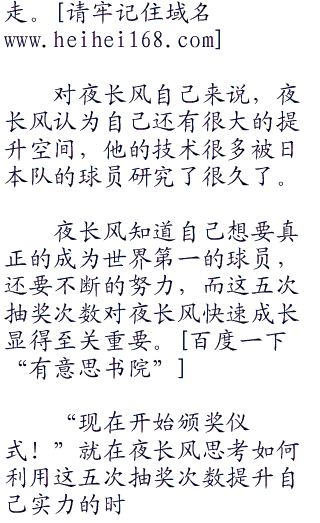 走。[请牢记住域名
www.heihei168.com]
对夜长风自己来说，夜
长风认为自己还有很大的提
升空间，他的技术很多被日
本队的球员研究了很久了。
夜长风知道自己想要真
正的成为世界第一的球员，
还要不断的努力，而这五次
抽奖次数对夜长风快速成长
显得至关重要。[百度一下
“有意思书院”]
“现在开始颁奖仪
式！”就在夜长风思考如何
利用这五次抽奖次数提升自
己实力的时